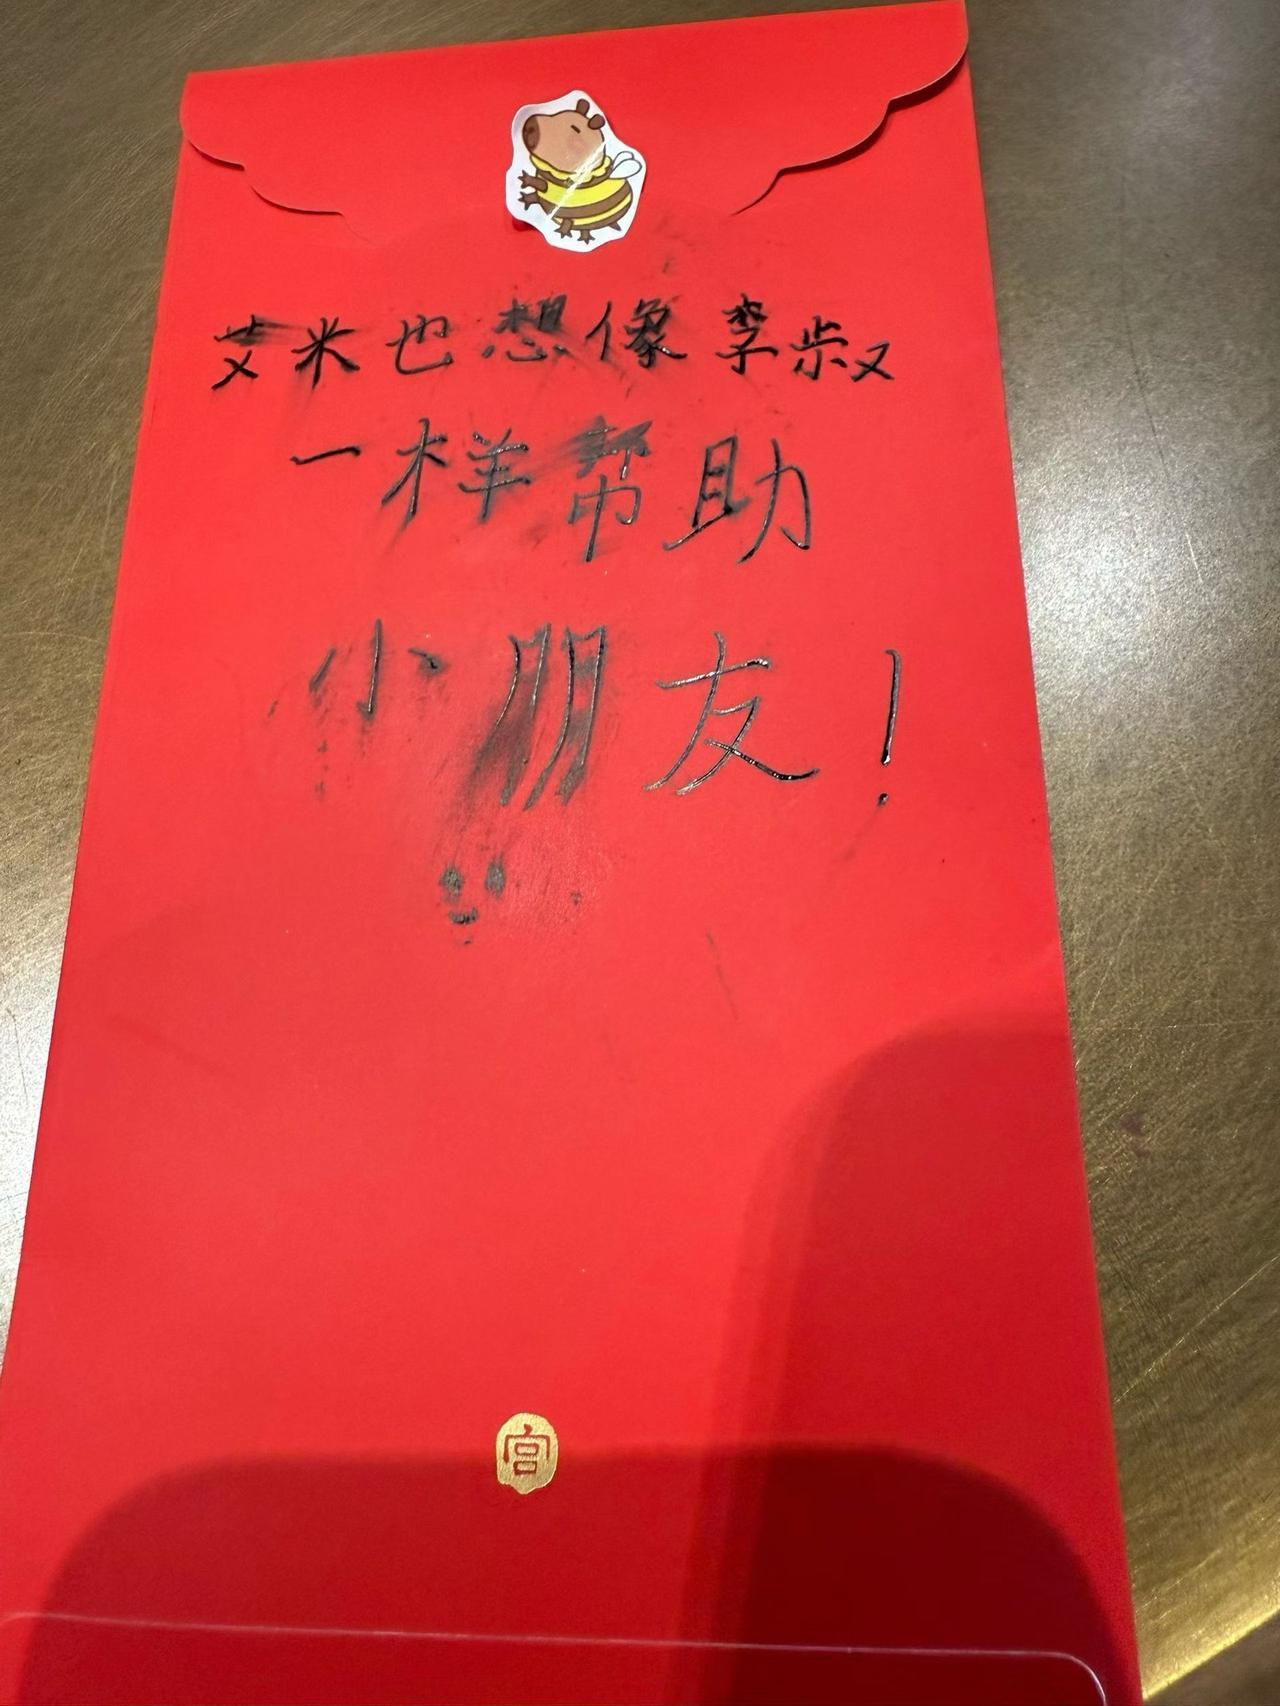 艾米也想像李叔
一样帮助
小朋友！
宫